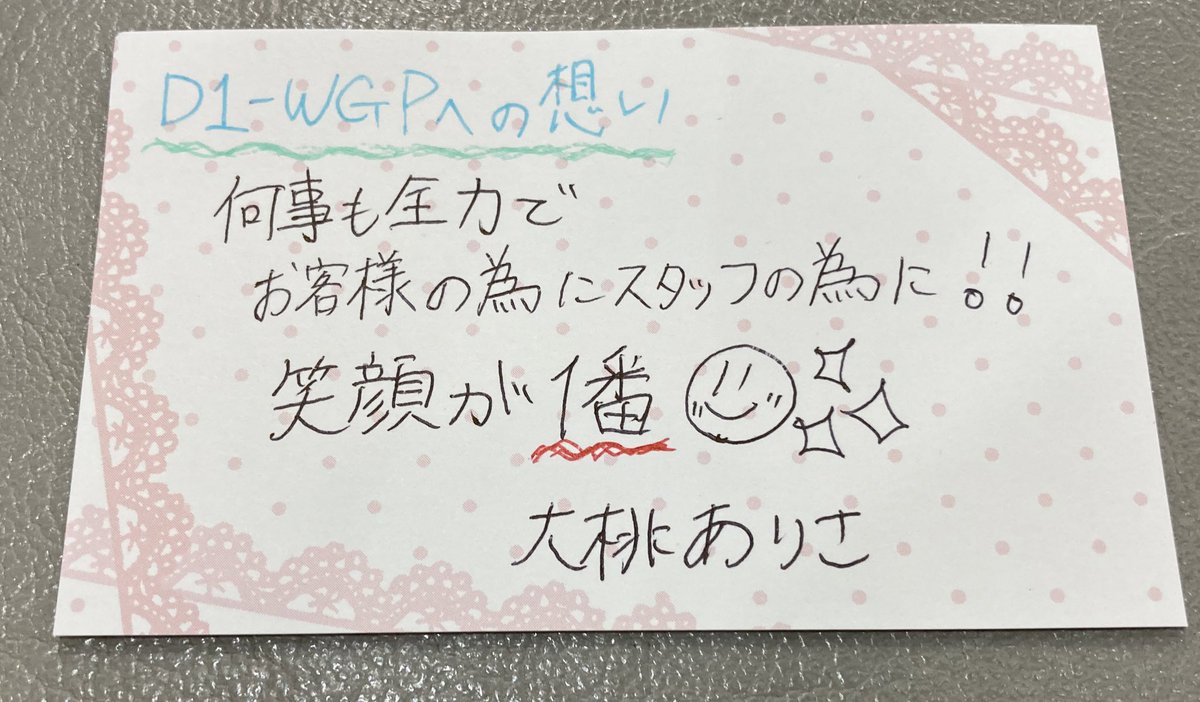 D1-WGPへの想い
何事も全力で
お客様の為にスタッフの為に!!
笑顔が1番
大桃ありさ